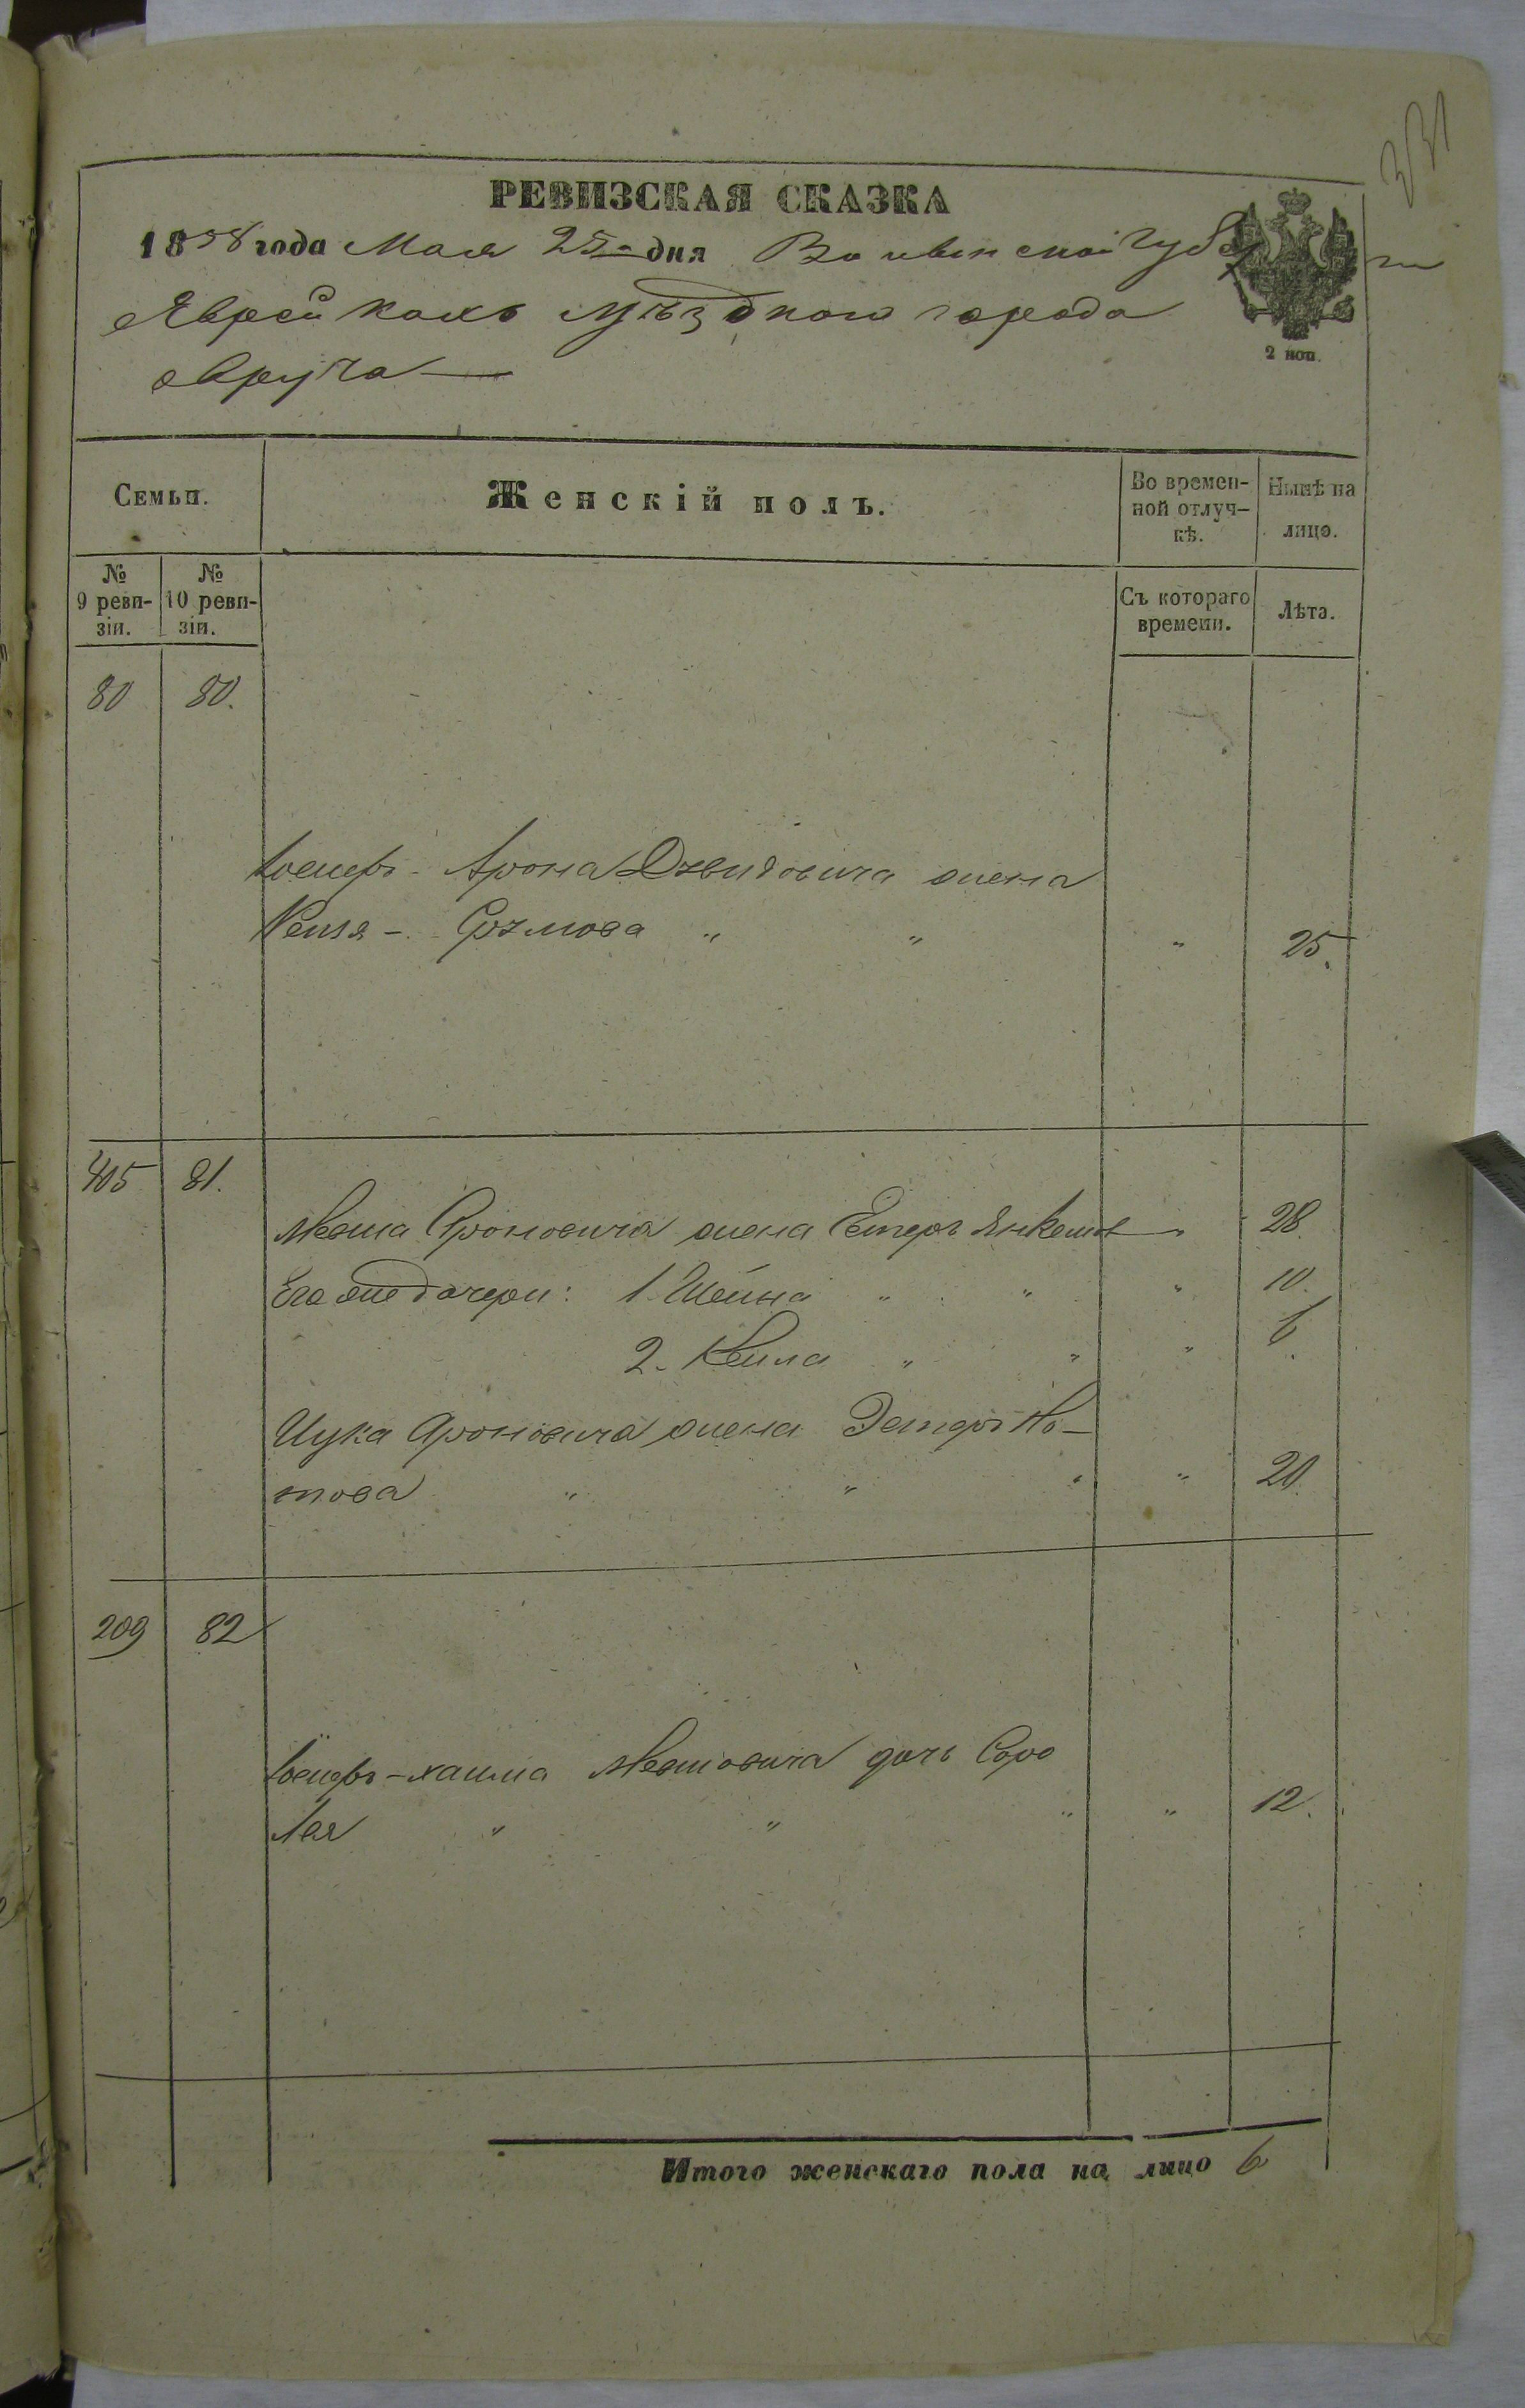 331
РЕВИЗСКАЯ СКАЗКА
1858 года Мая 25 дня Волынской Губер
нии
Еврейкахъ уѣзднаго города
Овруча
2 коп.
Семьи.
Женскій полъ.
Во времен-
ной отлуч-
кѣ.
Нынѣ на
лицо.
№
9 реви-
зіи.
№
10 реви-
зіи.
Съ котораго
времени.
Лѣта.
80 80.
Іосифъ-Арона Давидовича жена
Срулова " " " 25.
405 81.
Ароновича жена Естеръ Янкелев " 28.
Его же дочери: 1. Шейна " " " 10.
2. Кейла " " " 6.
Ицка Ароновича жена Эстеръ Но-
това " " " " 20.
209 82
Іосифъ-хаима Мевшовича дочь Сора
Лея " " " " 12.
Итого женскаго пола на лицо 6